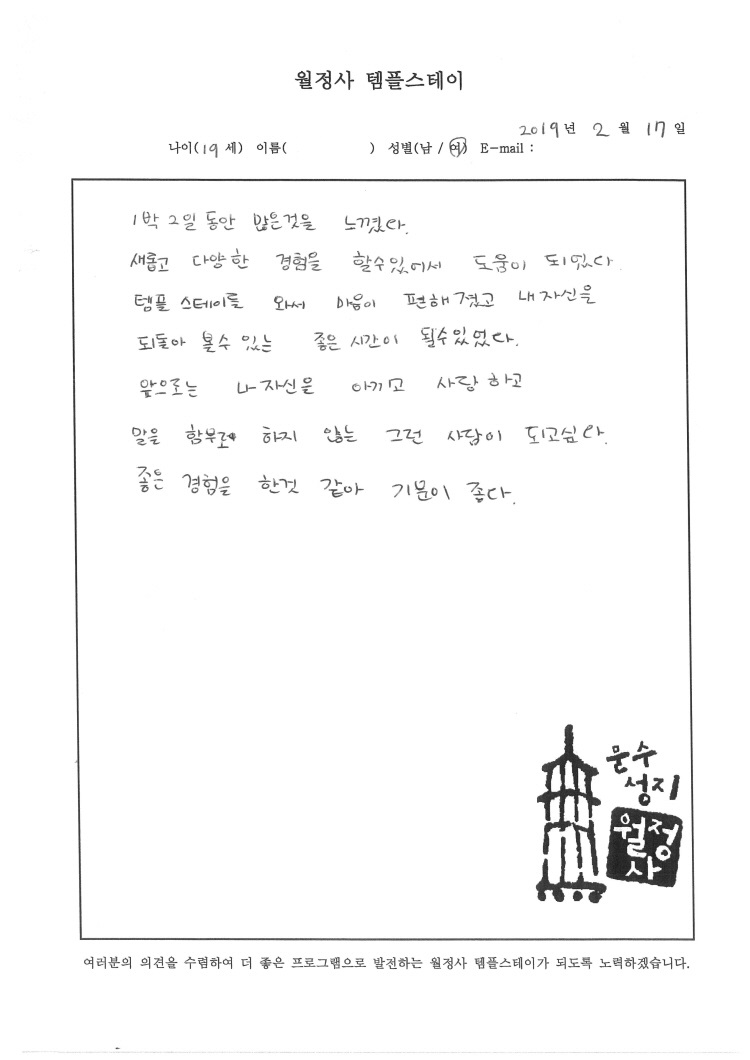 월정사 템플스테이
2019년 2월 17일
나이(19세) 이름( ) 성별(남 / 여) E-mail :
1박 2일 동안 많은것을 느꼈다.
새롭고 다양한 경험을 할수있어서 도움이 되었다.
템플 스테이를 와서 마음이 편해졌고 내자신을
되돌아 볼수 있는 좋은 시간이 될수있었다.
앞으로는 나자신을 아끼고 사랑하고
말을 함부로 하지 않는 그런 사람이 되고싶다.
좋은 경험을 한것 같아 기분이 좋다.
문수
성지
월정
사
여러분의 의견을 수렴하여 더 좋은 프로그램으로 발전하는 월정사 템플스테이가 되도록 노력하겠습니다.